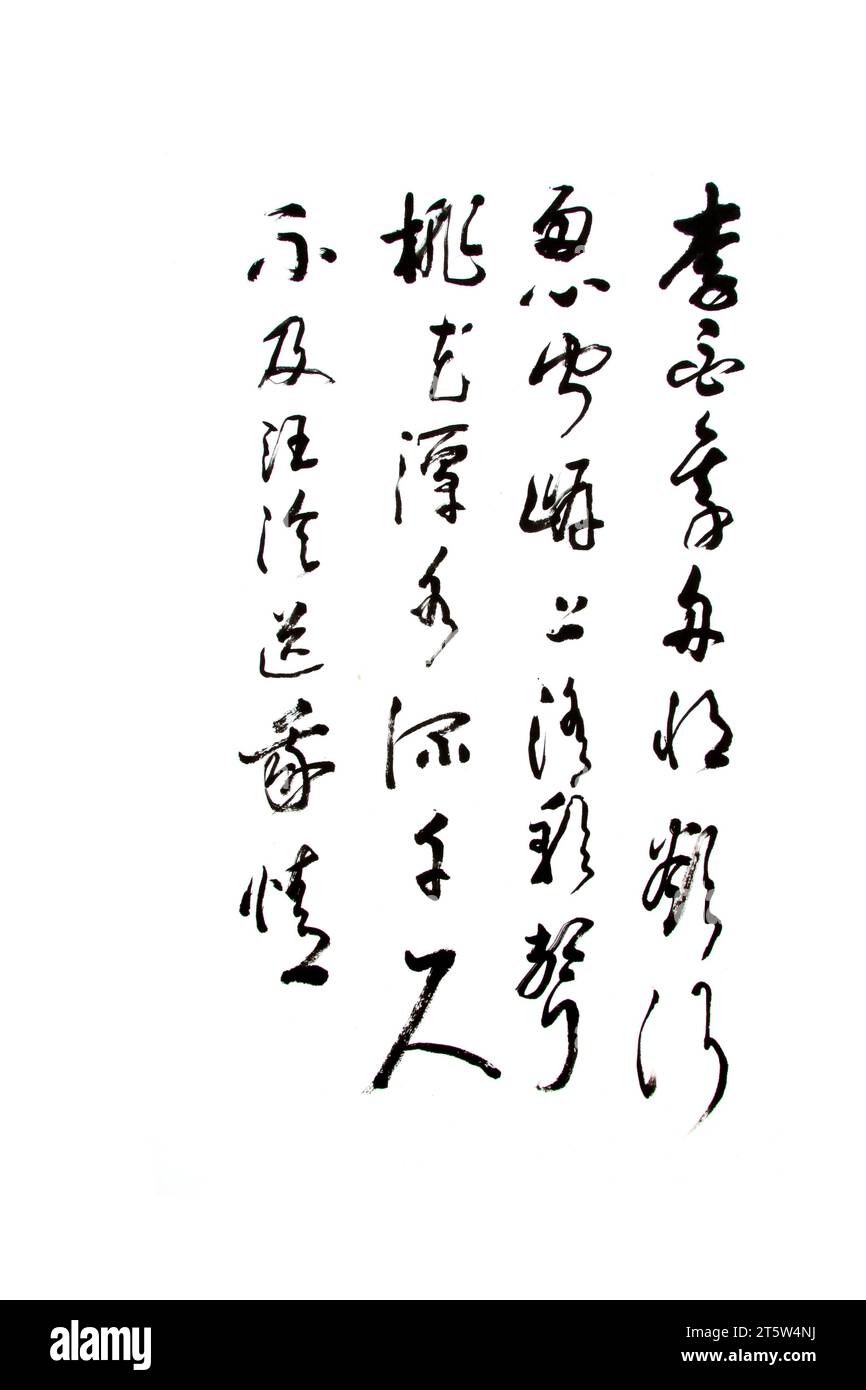 李白乘舟將欲行
忽聞岸上踏歌聲
桃花潭水深千尺
不及汪倫送我情
alamy
Image ID: 2T5W4NJ
www.alamy.com